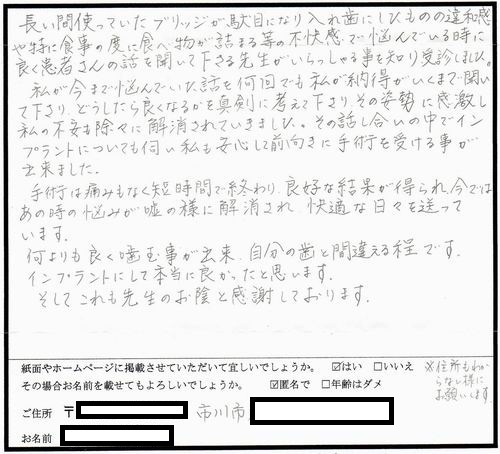 長い間使っていたブリッジが駄目になり入れ歯にしたものの違和感
や特に食事の度に食べ物が詰まる等の不快感で悩んでいる時に
良く患者さんの話を聞いて下さる先生がいらっしゃる事を知り受診しました。
私が今まで悩んでいた話を何回でも私が納得がいくまで聞い
て下さり、どうしたら良くなるかを真剣に考えて下さりその姿勢に感激し
私の不安も除々に解消されていきました。その話し合いの中でイン
プラントについても伺い私も安心して前向きに手術を受ける事が
出来ました。
手術は痛みもなく短時間で終わり、良好な結果が得られ、今では
あの時の悩みが嘘の様に解消され、快適な日々を送って
います。
何よりも良く噛む事が出来、自分の歯と間違える程です。
インプラントにして本当に良かったと思います。
そしてこれも先生のお陰と感謝しております。
紙面やホームページに掲載させていただいて宜しいでしょうか。 ☑はい □いいえ
その場合お名前を載せてもよろしいでしょうか。 ☑匿名で □年齢はダメ
※住所もわか
らない様に
お願いします。
ご住所 〒 市川市
お名前